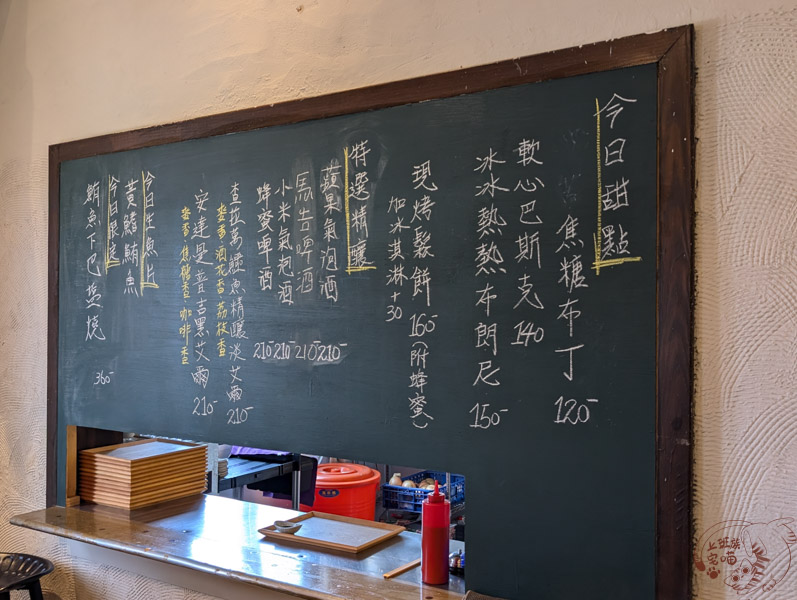 今日甜點
焦糖布丁 120-
軟心巴斯克 140
冰冰熱熱布朗尼 150-
現烤鬆餅 160-(附蜂蜜)
加冰淇淋+30
特選精釀
蘋果氣泡酒 210-
馬告啤酒 210-
小米氣泡酒 210-
蜂蜜啤酒 210-
查拉萬鱷魚精釀淡艾爾 210-
麥香·酒花香·荔枝香
安達曼普吉黑艾爾 210-
麥香·焦糖香·咖啡香
今日生魚片
黃鰭鮪魚
今日限定
鮪魚下巴燒 360-
上班族
宅喵